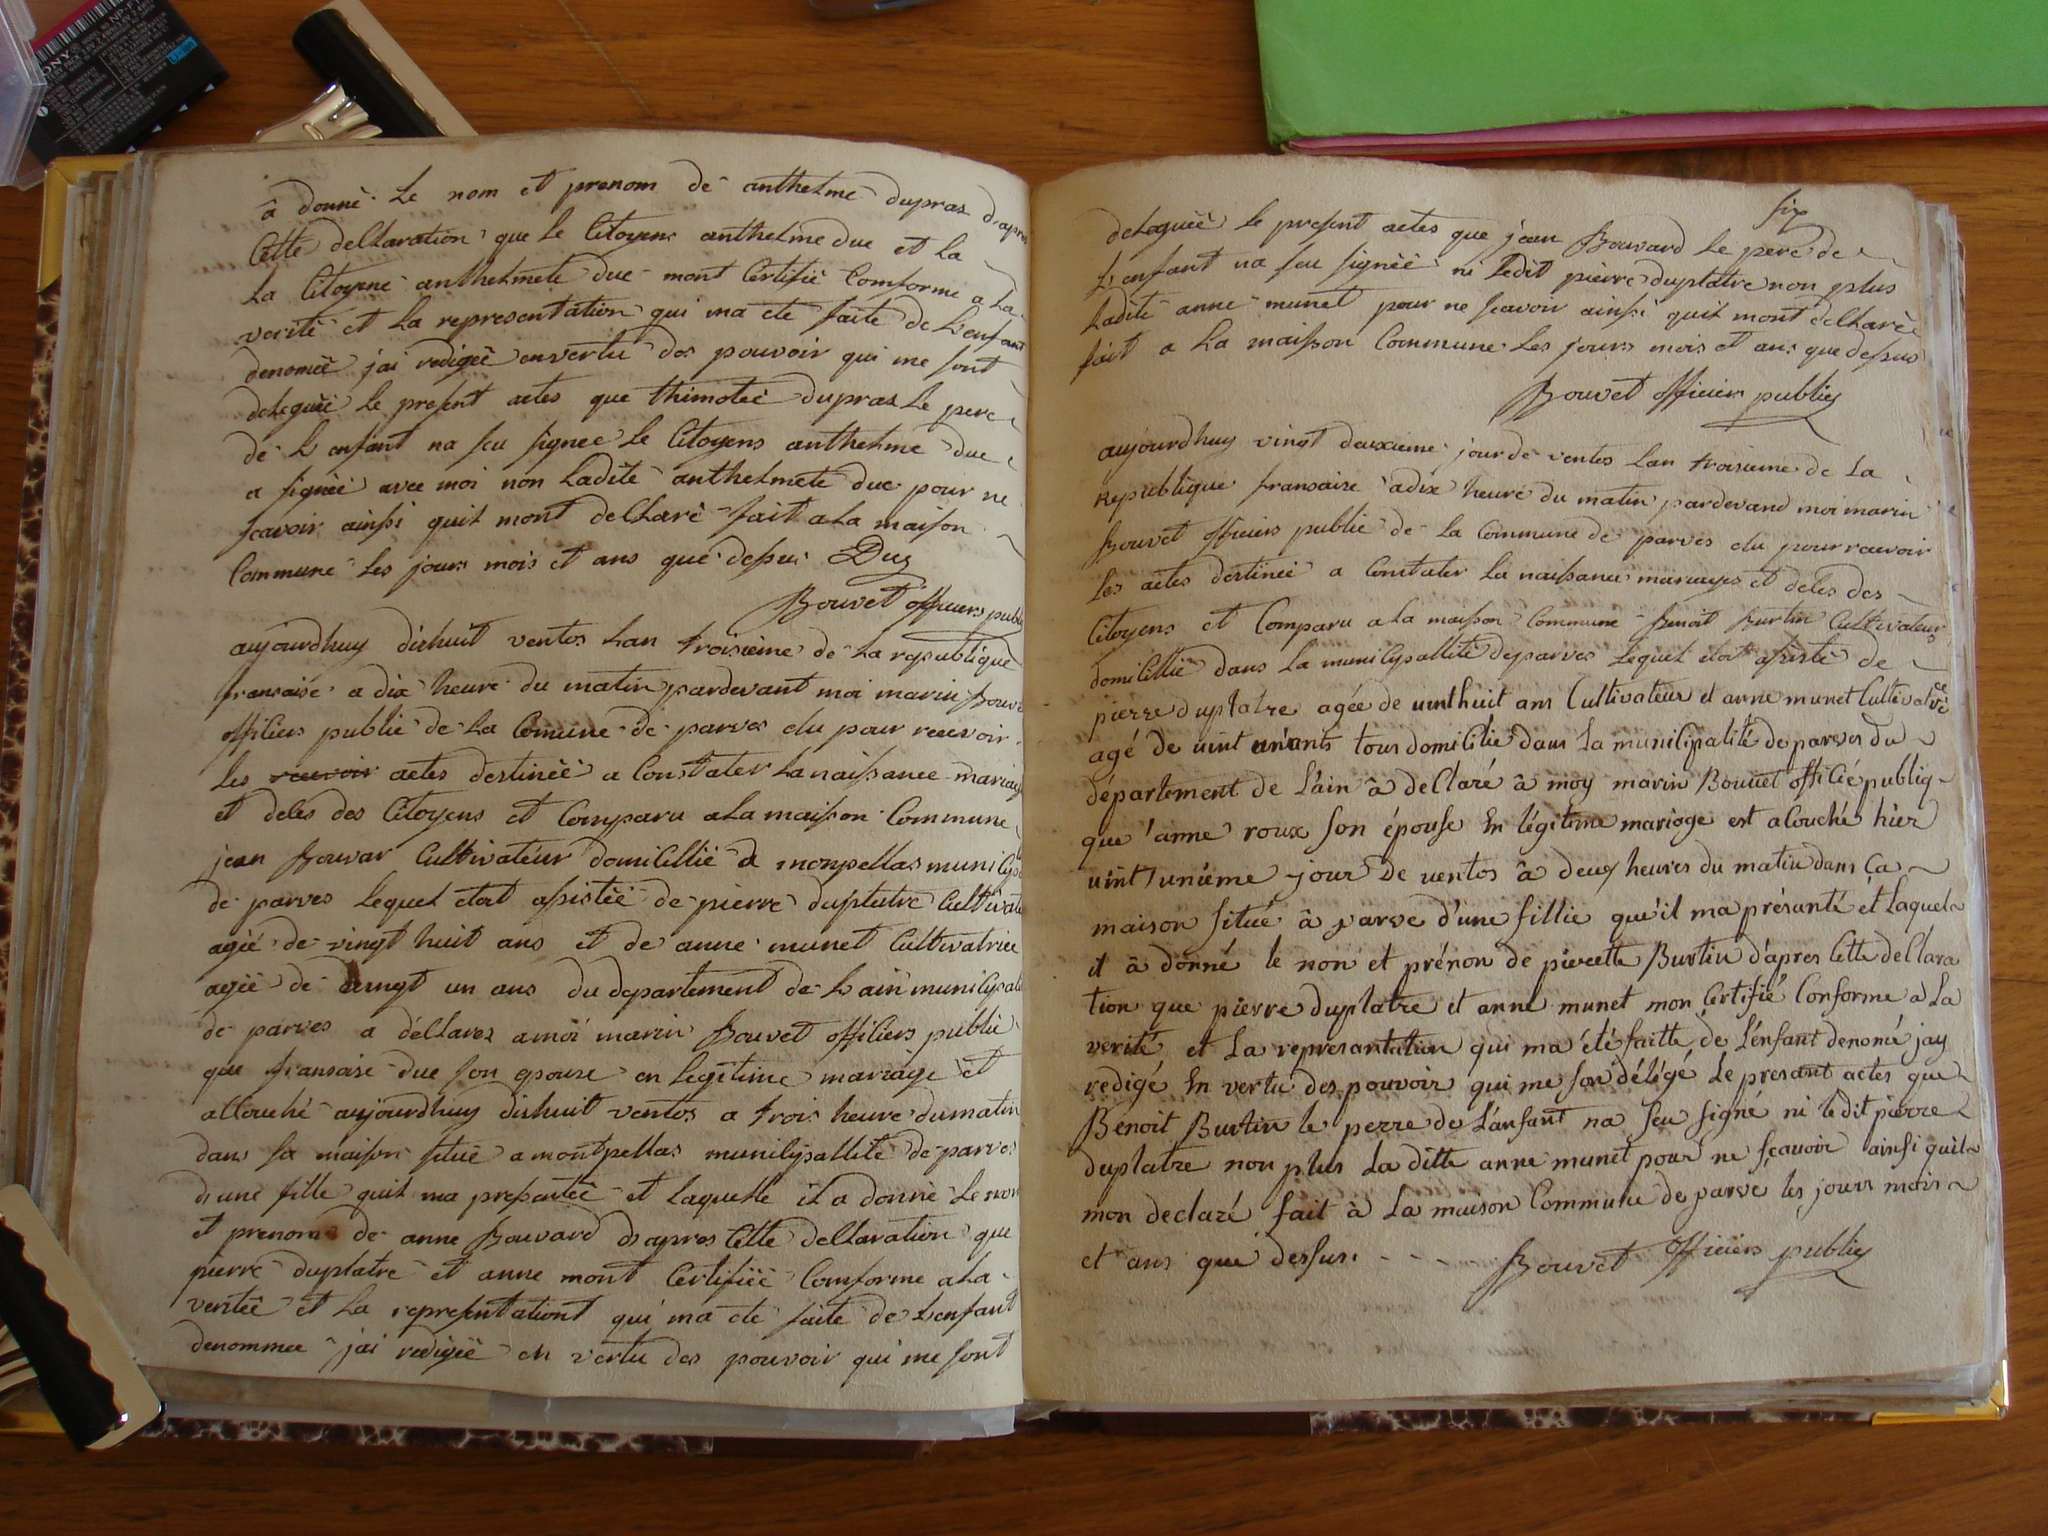 â donné Le nom et prenom de anthelme dupraz d'apres
Cette delLaration que Le Citoyens anthelme duc et La
La Citoyene anthelmete duc mont Certifié Comforme a La
verité et La representation qui ma ete faite de L'enfant
denomée j'ai redigée en vertu des pouvoir qui me sont
deleguée Le present actes que thimoteé dupraz Le pere
de L'enfant na seu signee Le Citoyens anthelme duc
a signée avec moi non Ladite anthelmete duc pour ne
scavoir ainssi quil mont delLaré fait a La maison
Commune Les jours mois et ans que dessus Duc
Bouvet officiers public
aujourdhuy dishuit ventos Lan troisieme de La republique
fransaise a dix heure du matin pardevant moi marin Bouvet
officiers public de La Comune de parves elu pour recevoir
Les recevoir actes destineé a Constater La naissance mariage
et deles des Citoyens et Comparu a La maison Commune
jean Bouvar Cultivateur domicillié a monpellas municip
de parves Lequel etoit assistée de pierre duplatre Cultivate
ageé de vingt huit ans et de anne munet Cultivatrice
ageé de vingt un ans du departement de L'ain municipal
de parves a délLarez a moi marin Bouvet officiers public
que fransaise duc son epouse en Legitime mariage et
allouché aujourdhuy dishuit ventos a trois heure du matin
dans sa maison situé a montpellas municipallité de parves
d'une fille quil ma presentée et Laquelle il a donné Le nom
et prenom de anne Bouvard d'apres Cette delLaration que
pierre duplatre et anne mont Certifiée Comforme a La
veritée et La representationt qui ma ete faite de L'enfant
denommee j'ai redigée en vertu des pouvoir qui me sont
six
deleguée Le present actes que jean Bouvard Le pere de
L'enfant na seu signée ni Ledit pierre duplatre non plus
Ladite anne munet pour ne scavoir ainssi quil mont delLaré
fait a La maisson Commune Les jours mois et ans que dessus
Bouvet officiers publicq
aujourdhuy vingt deuxieme jour de ventos Lan troisieme de La
republique fransaise a dix heure du matin pardevand moi marin
Bouvet officiers public de La Commune de parves elu pour recevoir
Les actes destineé a Constater La naissance mariages et deles des
Citoyens et Comparu a La maison Commune Benoit Burtin Cultivateurs
domicillié dans La municipallité de parves Lequel etoit assisté de
pierre duplatre agée de uinthuit ans Cultivateur et anne munet Cultivatrice
agé de uint un ants tous domicilié dans La municipalité de parves du
département de L'ain â delLaré â moy marin Bouuet officié publiq
que anne roux son épouse En légitime mariage est alouché hier
uint unieme jour De uentos â deux heures du matin dans ça
maison situé â parve d'une fillie qu'il ma présanté et Laquel
il â donné le non et prénon de pierrette Burtin d'apres Cette delLara
tion que pierre duplatre et anne munet mon Certifié Conforme a La
verité et La represantation qui ma été faitte de L'énfant denomé jay
redigé En vertu des pouvoir qui me son délégé Le presant actés que
Benoit Burtin le perre de L'anfant na seu signé ni ledit pierre
duplatre non plus La ditte anne munet pour ne scauoir ainsi quil
mon declaré fait à La maison Commune de parve les jours mois
et ans que dessus. Bouvet officiers publicq
SONY